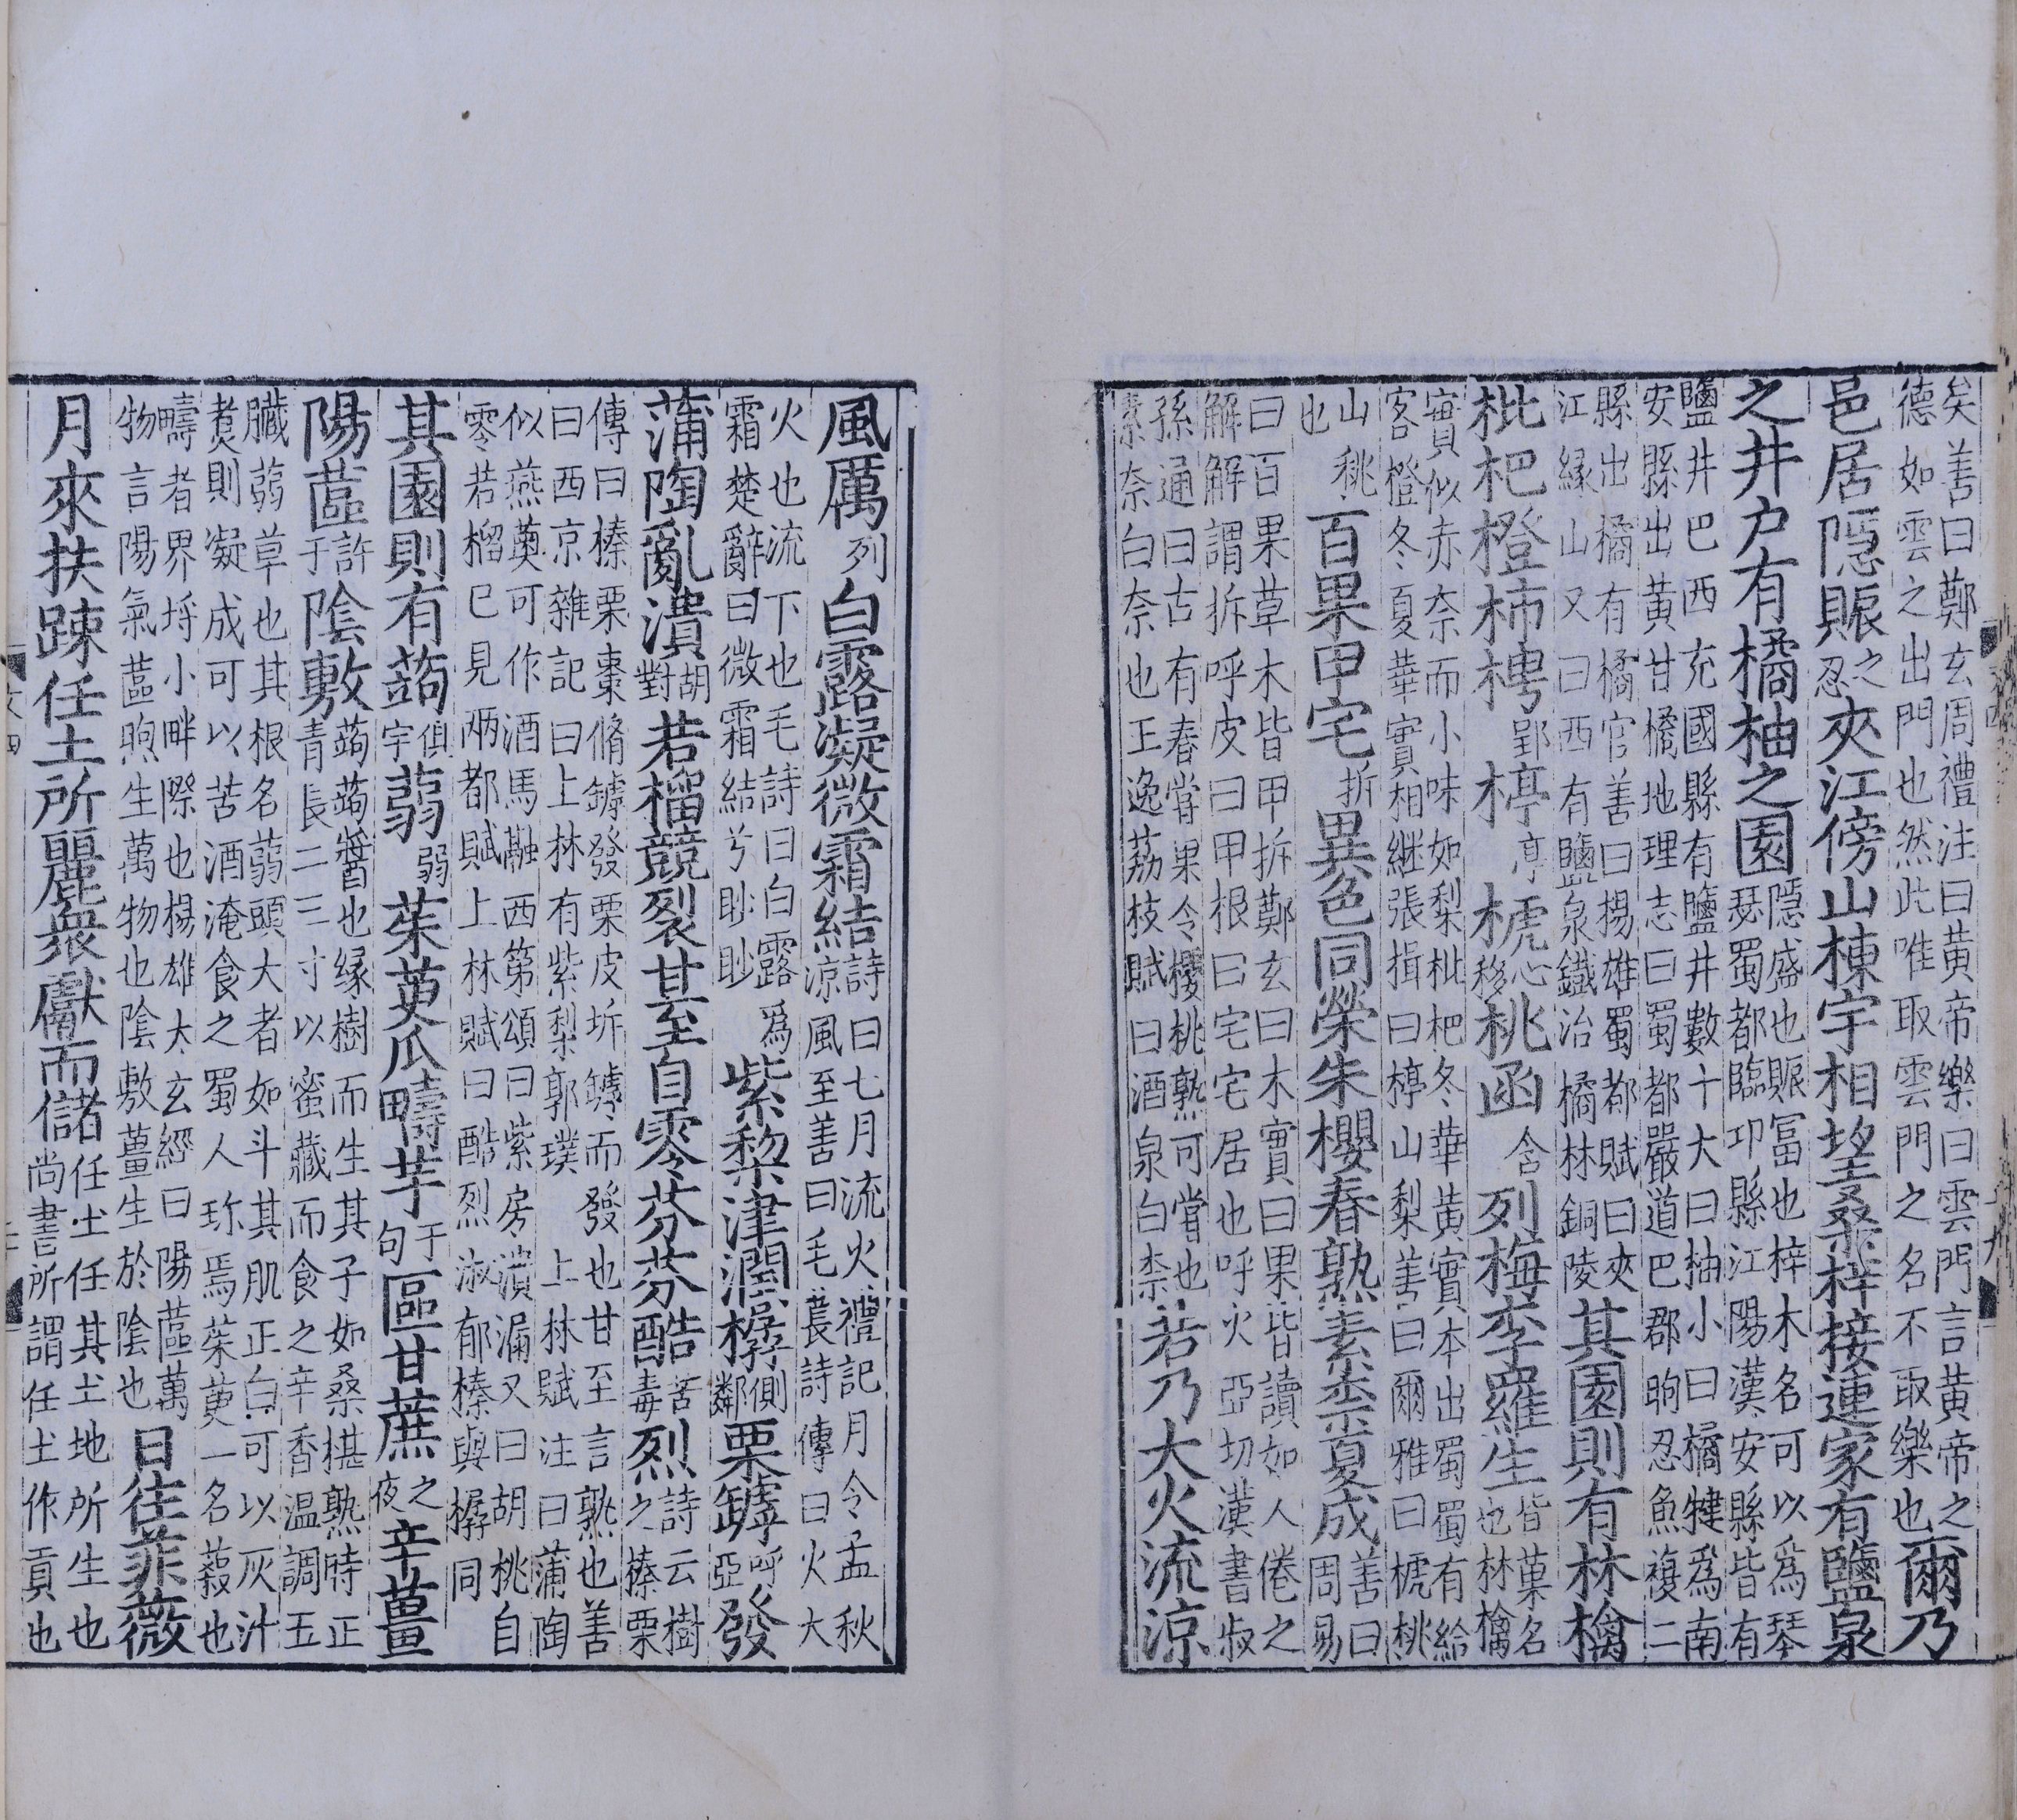 矣善曰鄭玄周禮注曰黃帝樂曰雲門言黃帝之
德如雲之出門也然此唯取雲門之名不取樂也爾乃
邑居隱賑之忍夾江傍山棟宇相望桑梓接連家有鹽泉
之井户有橘柚之園隱盛也賑冨也梓木名可以爲琴
瑟蜀都臨邛縣江陽漢安縣皆有
鹽井巴西充國縣有鹽井數十大曰柚小曰橘犍爲南
安縣出黃甘橘地理志曰蜀都嚴道巴郡朐忍魚複二
縣出橘有橘官善曰揚雄蜀都賦曰夾
江緣山又曰西有鹽泉鐵冶橘林銅陵其園則有林檎
枇杷橙柿梬郢楟亭榹心移桃函含列梅李羅生皆菓名
也林檎
實似赤柰而小味如梨枇杷冬華黃實本出蜀蜀有給
客橙冬夏華實相繼張揖曰楟山梨善曰爾雅曰榹桃
山桃
也百果甲宅折異色同榮朱櫻春熟素柰夏成善曰
周易
曰百果草木皆甲拆鄭玄曰木實曰果皆讀如人倦之
解解謂拆呼皮曰甲根曰宅宅居也呼火亞切漢書叔
孫通曰古有春嘗果令櫻桃熟可嘗也
素柰白柰也王逸荔枝賦曰酒泉白柰若乃大火流涼
風厲列白露凝微霜結詩曰七月流火禮記月令孟秋
涼風至善曰毛萇詩傳曰火大
火也流下也毛詩曰白露爲
霜楚辭曰微霜結兮眇眇紫棃津潤樼側鄰栗罅呼亞發
蒲陶亂潰胡對若榴競裂甘至自零芬芬酷苦毒烈詩云樹
之榛栗
傳曰榛栗棗脩罅發栗皮坼罅而發也甘至言熟也善
曰西京雜記曰上林有紫梨郭璞上林賦注曰蒲陶
似燕薁可作酒馬融西第頌曰紫房潰漏又曰胡桃自
零若榴已見兩都賦上林賦曰酷烈淑郁榛與樼同
其園則有蒟俱宇蒻弱茱萸瓜疇芋于句區甘蔗之夜辛薑
陽蓲許于陰敷蒟蒟醬也緣樹而生其子如桑椹熟時正
青長二三寸以蜜藏而食之辛香温調五
臟蒻草也其根名蒻頭大者如斗其肌正白可以灰汁
煑則凝成可以苦酒淹食之蜀人珎焉茱萸一名藙也
疇者界埒小畔際也楊雄太玄經曰陽蓲萬
物言陽氣蓲煦生萬物也陰敷薑生於陰也日往菲薇
月來扶疎任土所麗衆獻而儲任土任其土地所生也
尚書所謂任土作貢也